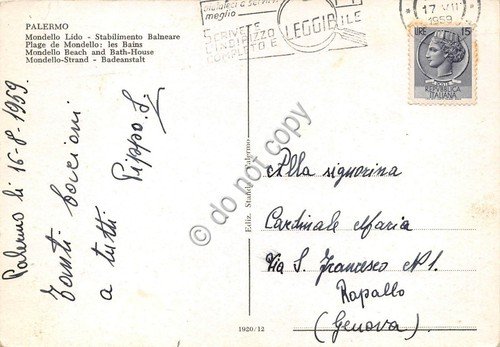 PALERMO
Mondello Lido - Stabilimento Balneare
Plage de Mondello: les Bains
Mondello Beach and Bath-House
Mondello-Strand - Badeanstalt
meglio
SCRIVETE
L'INDIRIZZO
COMPLETO E
LEGGIBILE
17 VIII
1959
LIRE 15
REPVBBLICA
ITALIANA
Palermo li 16-8-1959.
Tanti bacioni
a tutti
Pippo. S.
Ediz. Stancla Palermo
do not copy
Alla signorina
Cardinale Maria
Via S. Francesco N° 1.
Rapallo
(Genova)
1920/12